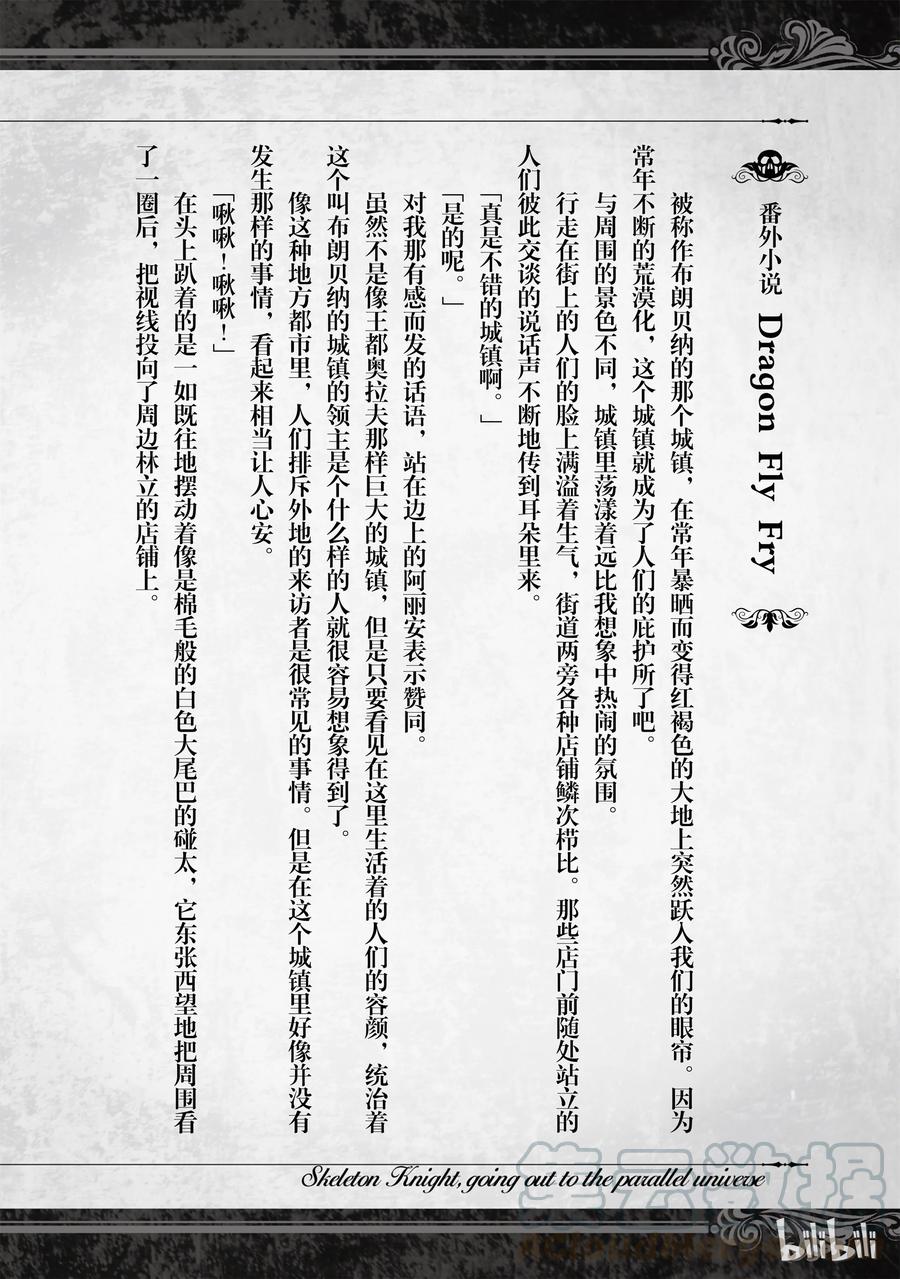 番外小说 Dragon Fly Fry
被称作布朗贝纳的那个城镇，在常年暴晒而变得红褐色的大地上突然跃入我们的眼帘。因为
常年不断的荒漠化，这个城镇就成为了人们的庇护所了吧。
与周围的景色不同，城镇里荡漾着远比我想象中热闹的氛围。
行走在街上的人们的脸上满溢着生气，街道两旁各种店铺鳞次栉比。那些店门前随处站立的
人们彼此交谈的说话声不断地传到耳朵里来。
「真是不错的城镇啊。」
「是的呢。」
对我那有感而发的话语，站在边上的阿丽安表示赞同。
虽然不是像王都奥拉夫那样巨大的城镇，但是只要看见在这里生活着的人们的容颜，统治着
这个叫布朗贝纳的城镇的领主是个什么样的人就很容易想象得到了。
像这种地方都市里，人们排斥外地的来访者是很常见的事情。但是在这个城镇里好像并没有
发生那样的事情，看起来相当让人心安。
「啾啾！啾啾！」
在头上趴着的是一如既往地摆动着像是棉毛般的白色大尾巴的碰太，它东张西望地把周围看
了一圈后，把视线投向了周边林立的店铺上。
Skeleton Knight, going out to the parallel universe
bilibili